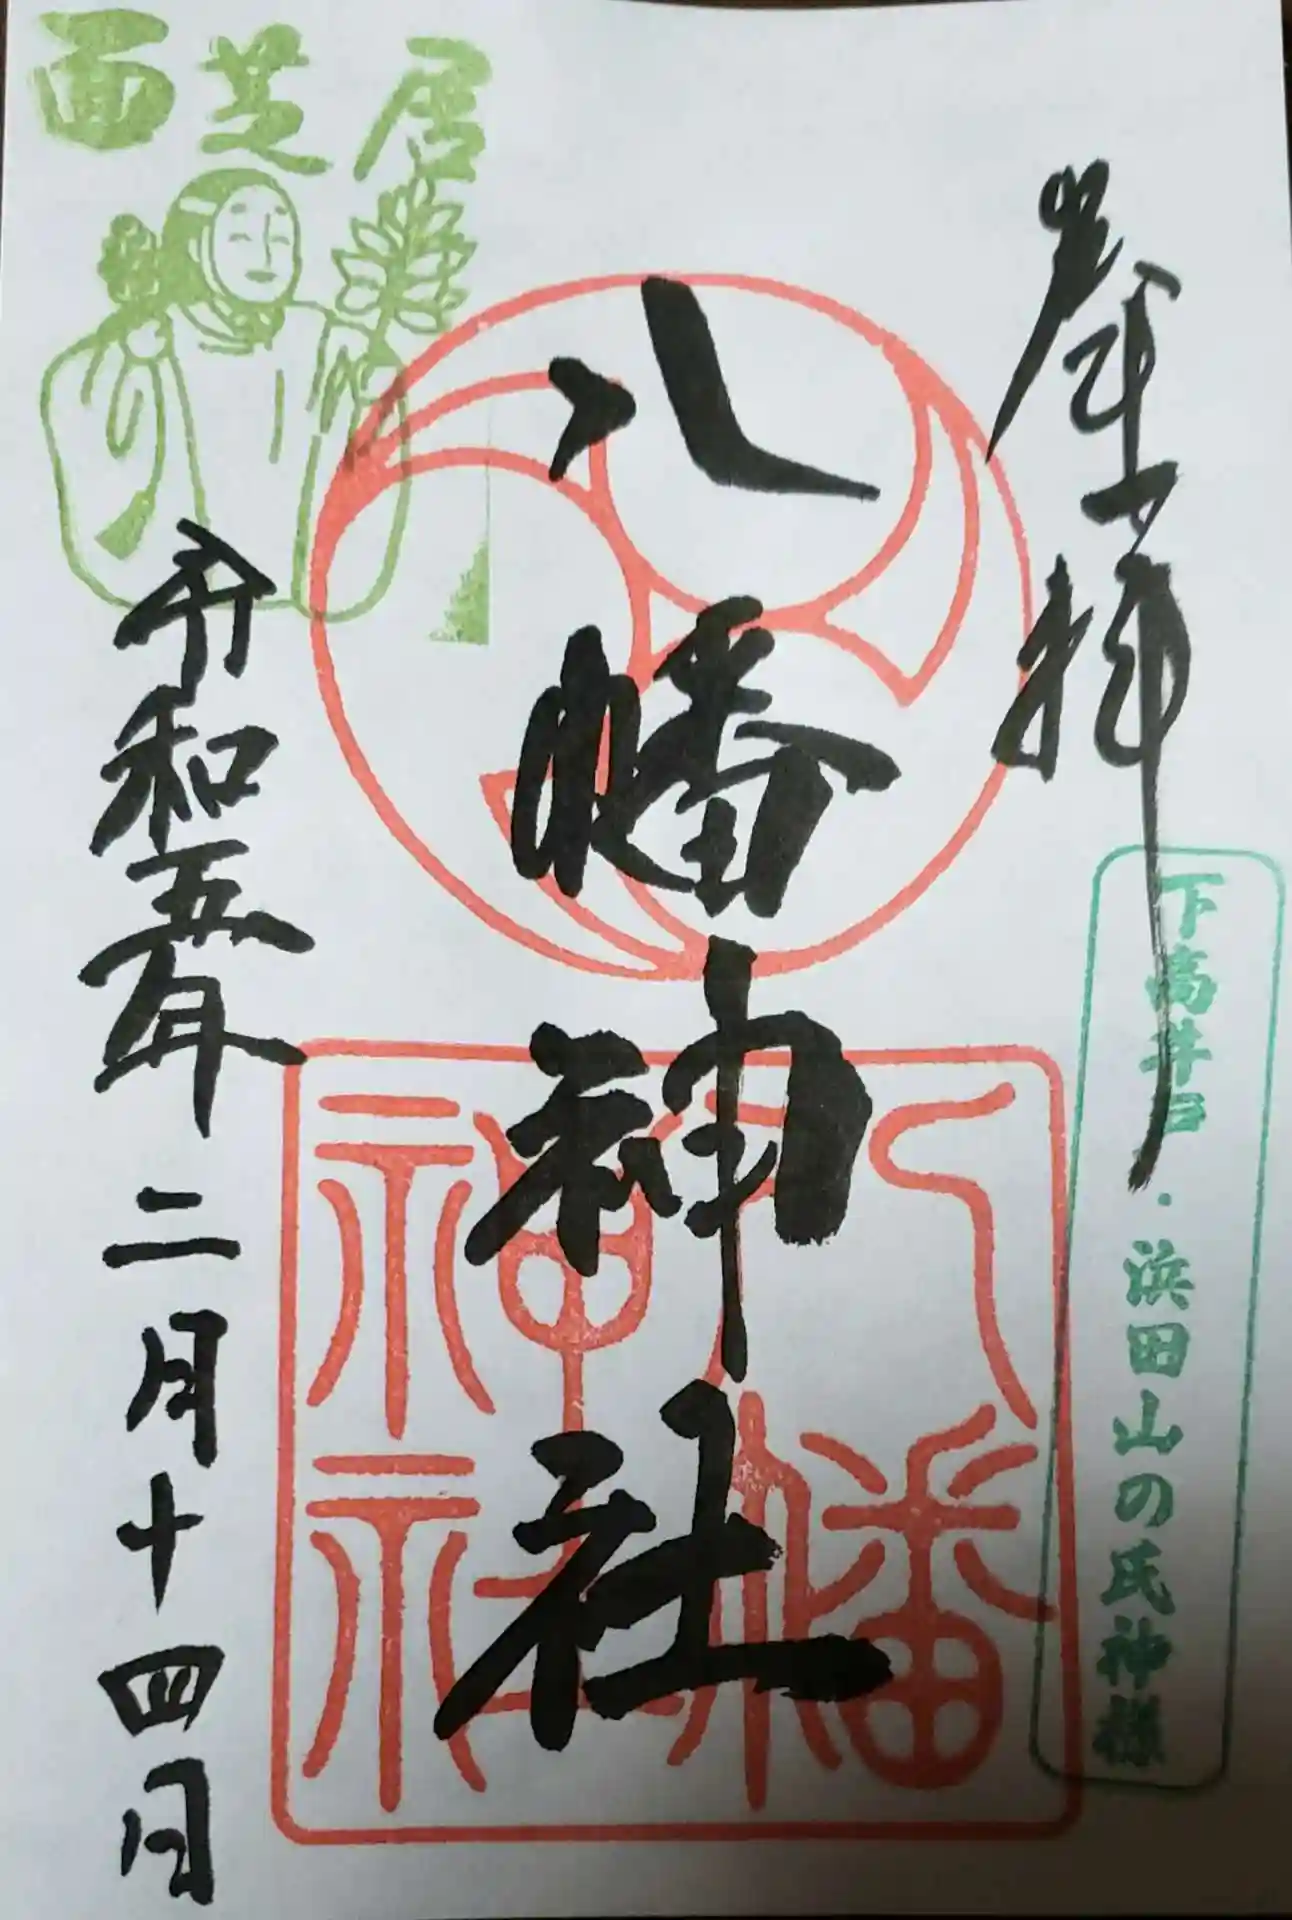 奉拝
下高井戸・浜田山の氏神様
八幡神社
八幡神社
面芝居
令和五年二月十四日